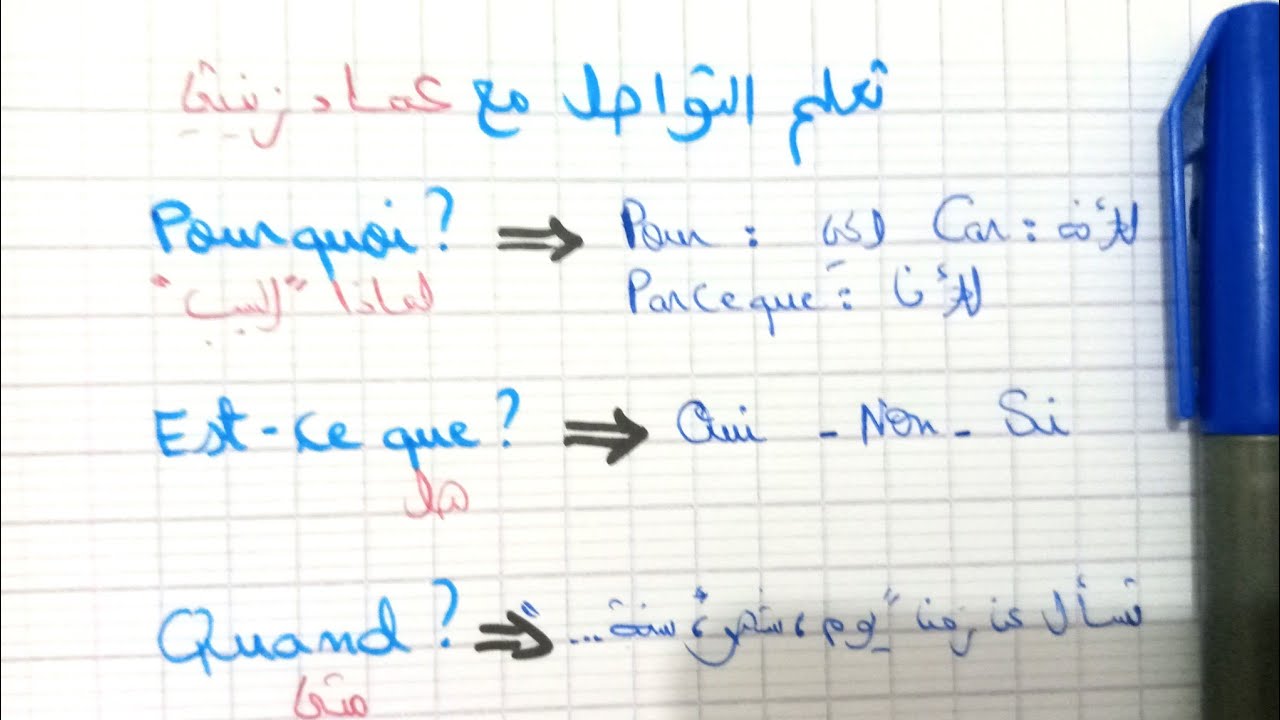 تعلم التواصل مع عماد زيتي
Pourquoi ? ⇒ Pour : لكي Car : لأنه
لماذا "السبب" Parce que : لأن
Est-ce que ? ⇒ Oui - Non - Si
هل
Quand ? ⇒ نسأل عن زمن "يوم، شهر، سنة ..."
متى